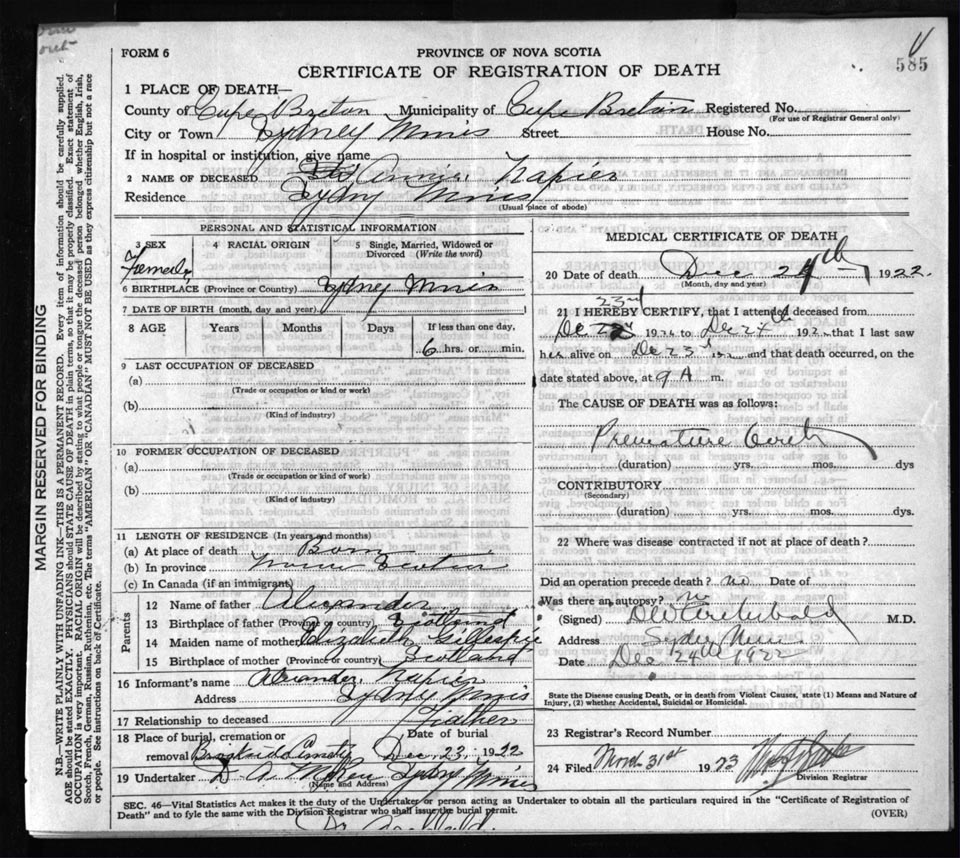 out
FORM 6
PROVINCE OF NOVA SCOTIA
585
CERTIFICATE OF REGISTRATION OF DEATH
1 PLACE OF DEATH—
County of Cape Breton Municipality of Cape Breton Registered No.
(For use of Registrar General only)
City or Town Sydney Mines Street House No.
If in hospital or institution, give name
2 NAME OF DECEASED Annie Napier
Residence Sydney Mines
(Usual place of abode)
PERSONAL AND STATISTICAL INFORMATION
3 SEX 4 RACIAL ORIGIN 5 Single, Married, Widowed or Divorced (Write the word)
Female
6 BIRTHPLACE (Province or Country) Sydney Mines
7 DATE OF BIRTH (month, day and year)
8 AGE Years Months Days If less than one day,
6 hrs. or min.
9 LAST OCCUPATION OF DECEASED
(a)
(Trade or occupation or kind or work)
(b)
(Kind of industry)
10 FORMER OCCUPATION OF DECEASED
(a)
(Trade or occupation or kind or work)
(b)
(Kind of industry)
11 LENGTH OF RESIDENCE (In years and months)
(a) At place of death Born
(b) In province Nova Scotia
(c) In Canada (if an immigrant)
Parents
12 Name of father Alexander
13 Birthplace of father (Province or country) Scotland
14 Maiden name of mother Elizabeth Gillespie
15 Birthplace of mother (Province or country) Scotland
16 Informant's name Alexander Napier
Address Sydney Mines
17 Relationship to deceased Father
18 Place of burial, cremation or Date of burial
removal Brookside Cemetery Dec 23, 1922
19 Undertaker Sydney Mines
(Name and Address)
MEDICAL CERTIFICATE OF DEATH
20 Date of death Dec 24th 1922
(Month, day and year)
23rd
21 I HEREBY CERTIFY, that I attended deceased from
192 to Dec 24th 192 that I last saw
her alive on Dec 23 192 and that death occurred, on the
date stated above, at 9 A m.
The CAUSE OF DEATH was as follows:
Premature birth
(duration) yrs. mos. dys
CONTRIBUTORY
(Secondary)
(duration) yrs. mos. dys.
22 Where was disease contracted if not at place of death?
Did an operation precede death? no Date of
Was there an autopsy? no
(Signed) Archibald M.D.
Address Sydney Mines
Date Dec 24th 1922
State the Disease causing Death, or in death from Violent Causes, state (1) Means and Nature of
Injury, (2) whether Accidental, Suicidal or Homicidal.
23 Registrar's Record Number
24 Filed March 31st 1923
Division Registrar
SEC. 46—Vital Statistics Act makes it the duty of the Undertaker or person acting as Undertaker to obtain all the particulars required in the "Certificate of Registration of
Death" and to fyle the same with the Division Registrar who shall issue the burial permit.
(OVER)
MARGIN RESERVED FOR BINDING
N.B.—WRITE PLAINLY WITH UNFADING INK—THIS IS A PERMANENT RECORD. Every item of information should be carefully supplied.
AGE should be stated EXACTLY. PHYSICIANS should STATE CAUSE OF DEATH in plain terms, so that it may be properly classified. Exact statement of
OCCUPATION is very important. RACIAL ORIGIN will be described by stating to what people or tongue the deceased person belonged whether English, Irish,
Scotch, French, German, Russian, Ruthenian, etc. The terms "AMERICAN" OR "CANADIAN" MUST NOT BE USED as they express citizenship but not a race
or people. See instructions on back of Certificate.